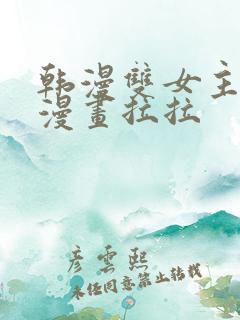 韩漫雙女主
漫畫拉拉
彦雲熙
未经同意禁止转载